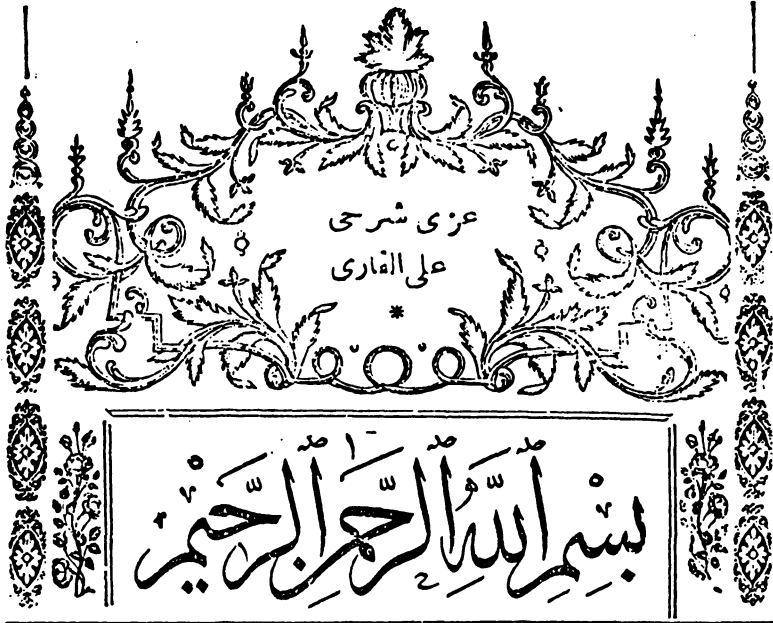 عزى شرحى
على القارى
*
بِسْمِ ٱللّٰهِ ٱلرَّحْمٰنِ ٱلرَّحِيْمِ